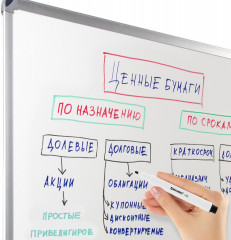 ЦЕННЫЕ БУМАГИ
ПО НАЗНАЧЕНИЮ
ПО СРОКАМ
ДОЛЕВЫЕ
ДОЛГОВЫЕ
КРАТКОСРОЧ
АКЦИИ
ОБЛИГАЦИИ
ПРОСТЫЕ
ПРИВЕДИГИРОВ
КУПОННЫЕ
ДИСКОНТНЫЕ
КОНВЕРТИРУЕМЫЕ